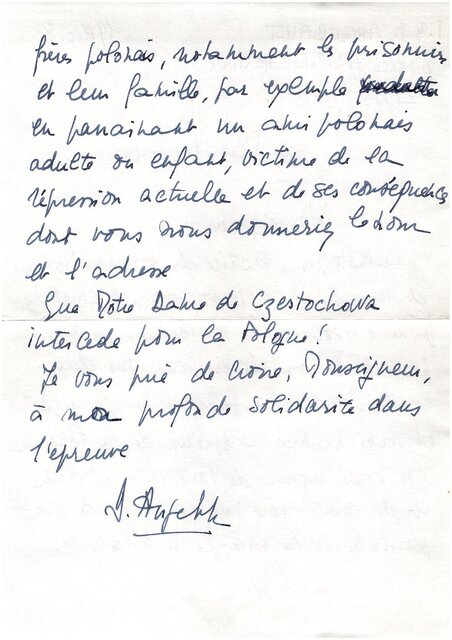 frères polonais, notamment les prisonniers
et leur famille, par exemple
en parrainant un ami polonais
adulte ou enfant, victime de la
répression actuelle et de ses conséquences
dont vous nous donneriez le nom
et l'adresse
Que Notre Dame de Czestochowa
intercède pour la Pologne!
Je vous prie de croire, Monseigneur,
à mon profonde solidarité dans
l'épreuve